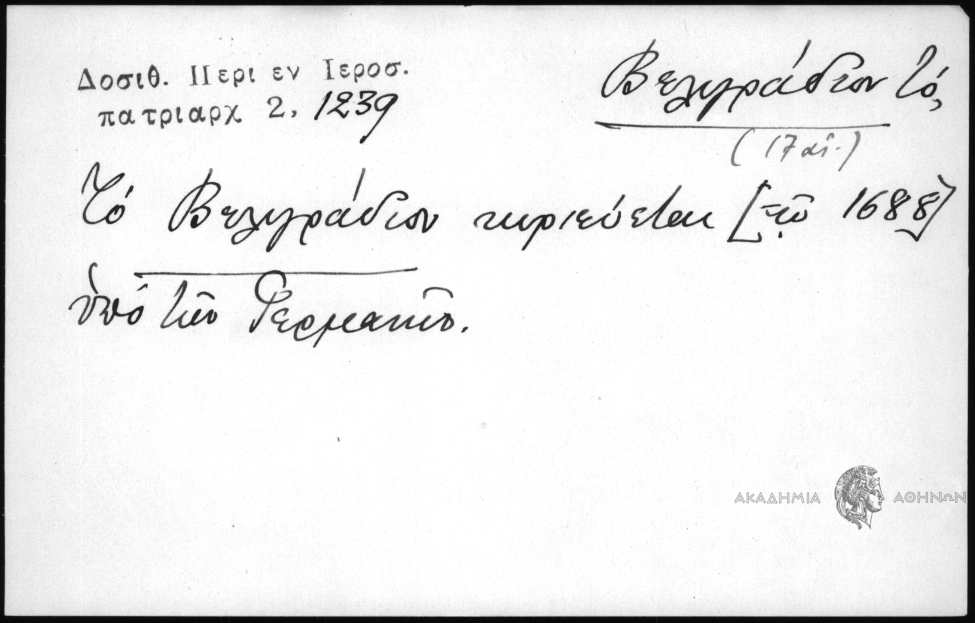 Δοσιθ. Περι εν Ιεροσ.
πατριαρχ 2, 1239
Βελιγράδιον τό,
(17 αἰ.)
Τό Βελιγράδιον κυριεύεται [τῷ 1688]
ὑπό τῶν Γερμανῶν.
ΑΚΑΔΗΜΙΑ ΑΘΗΝΩΝ